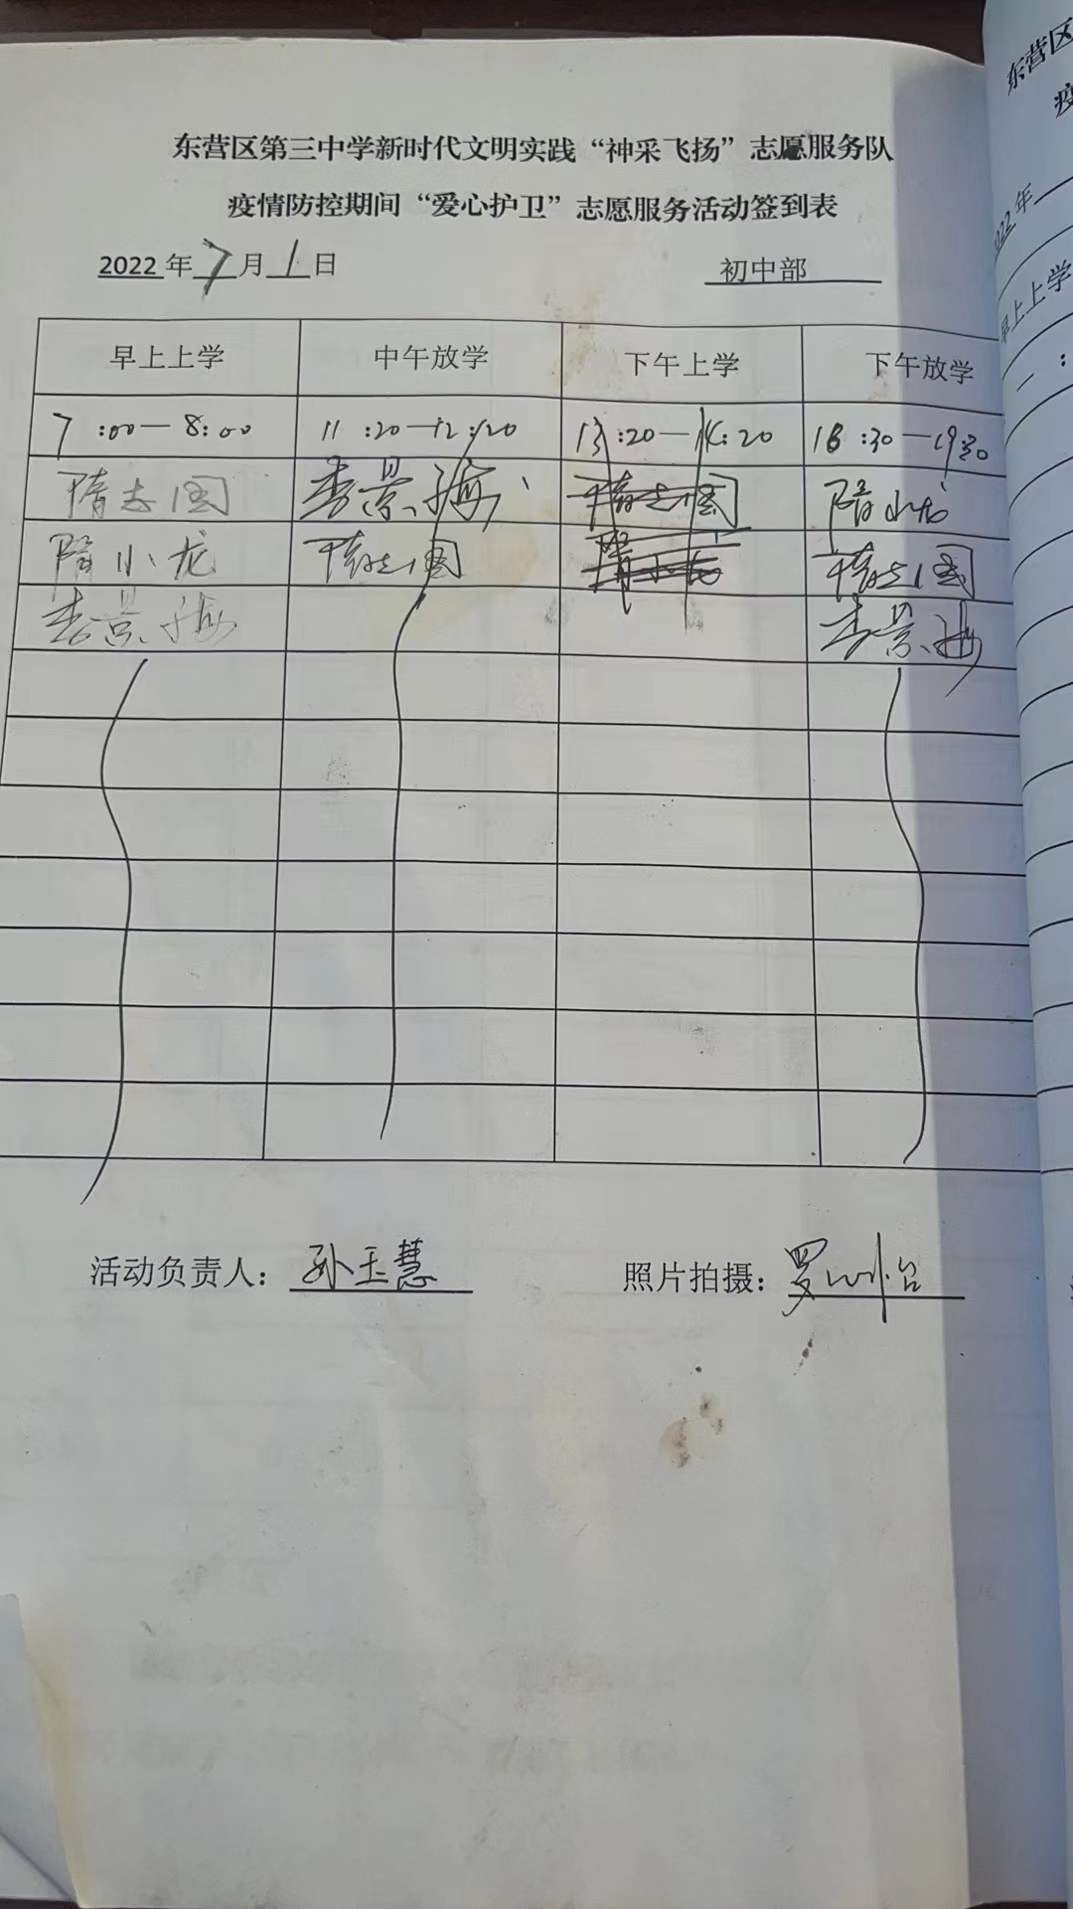 东营区第三中学新时代文明实践“神采飞扬”志愿服务队
疫情防控期间“爱心护卫”志愿服务活动签到表
2022年7月1日 初中部
早上上学 中午放学 下午上学 下午放学
7:00—8:00 11:20—12:20 13:20—14:20 18:30—19:30
隋志国 李景海 隋志国 隋小龙
隋小龙 隋志国 隋小龙 隋志国
李景海 李景海
活动负责人：孙玉慧 照片拍摄：罗
东营区
疫
2022年
早上上学